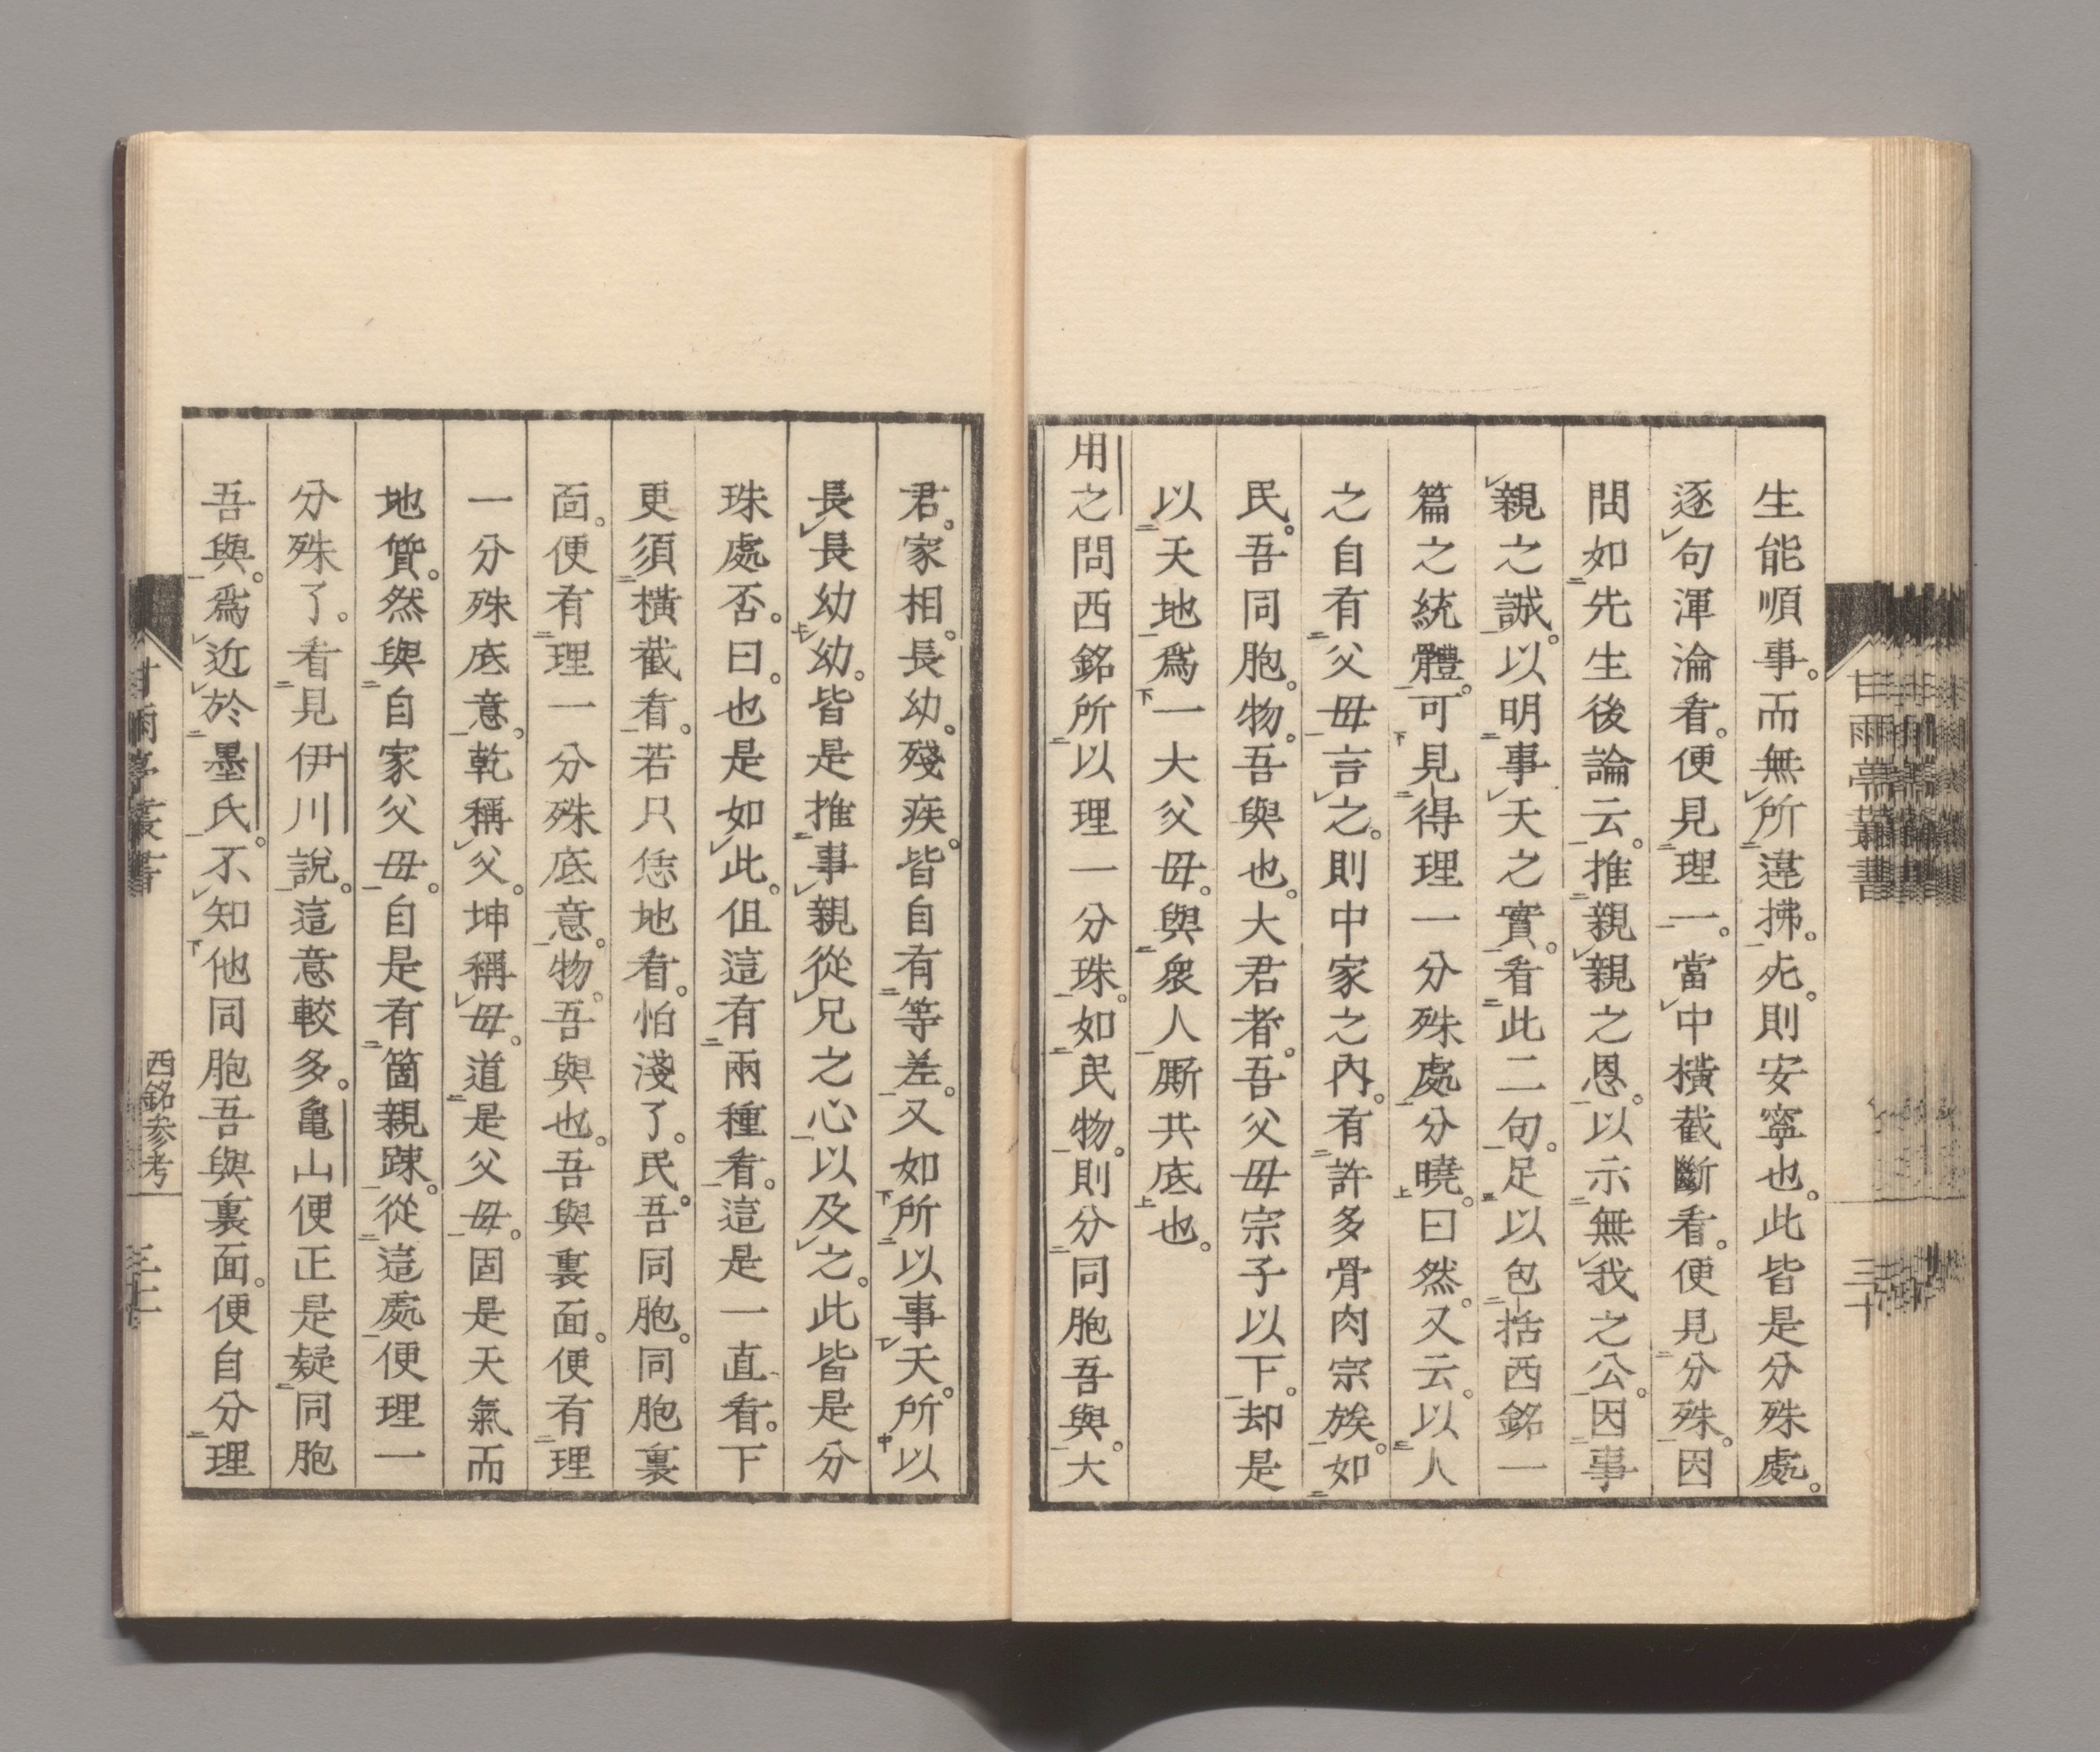 生能順事。而無所違拂。死。則安寧也。此皆是分殊處。
逐句渾淪看。便見理一。當中橫截斷看。便見分殊。因
問如先生後論云。推親親之恩。以示無我之公。因事
親之誠。以明事天之實。看此二句。足以包括西銘一
篇之統體。可見得理一分殊處分曉。曰然。又云。以人
之自有父毋言之。則中家之內。有許多骨肉宗族。如
民。吾同胞。物。吾與也。大君者。吾父毋宗子以下。却是
以天地爲一大父毋。與衆人厮共底也。
用之問西銘所以理一分珠。如民物。則分同胞吾與。大
君。家相。長幼。殘疾。皆自有等差。又如所以事天。所以
長長幼幼。皆是推事親從兄之心以及之。此皆是分
珠處否。曰。也是如此。伹這有兩種看。這是一直看。下
更須橫截看。若只恁地看。怕淺了。民。吾同胞。同胞裏
面。便有理一分殊底意。物。吾與也。吾與裏面。便有理
一分殊底意。乾稱父。坤稱毋。道是父毋。固是天氣而
地質。然與自家父毋。自是有箇親踈。從這處便理一
分殊了。看見伊川說。這意較多。亀山便正是疑同胞
吾與。爲近於墨氏。不知他同胞吾與裏面。便自分理
甘雨亭叢書
三十
甘雨亭叢書
西銘参考